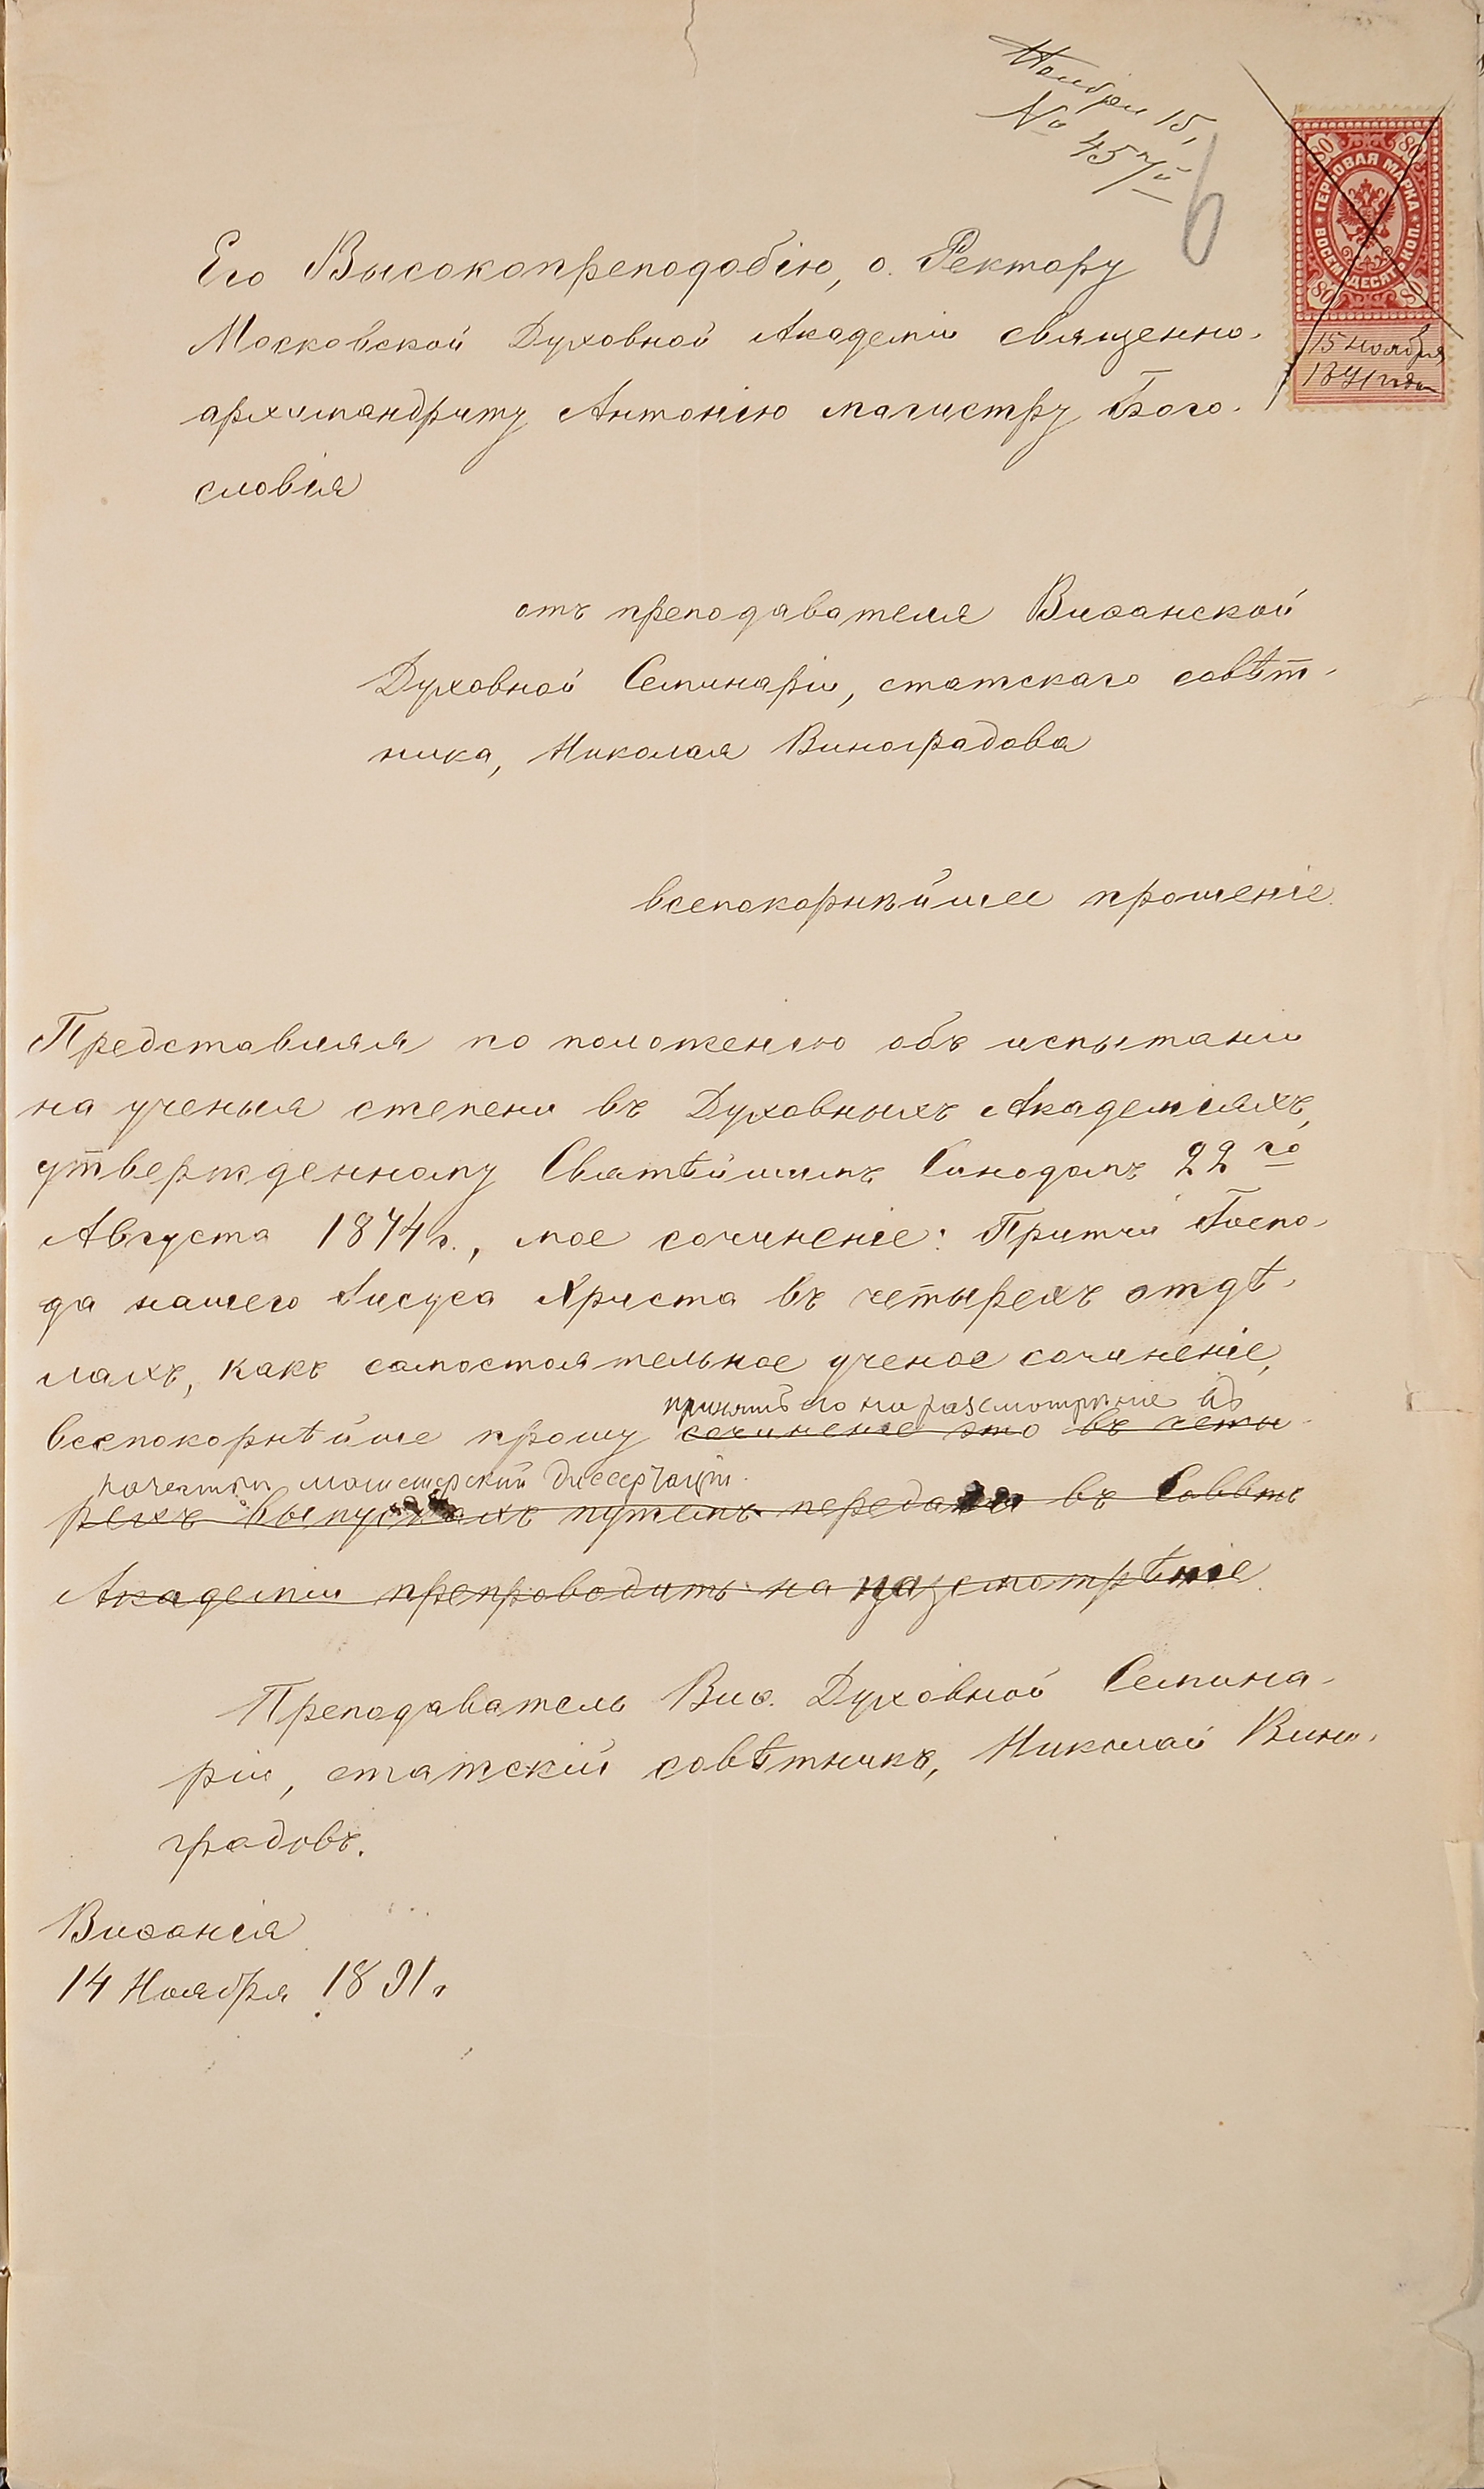 Ноября 15,
№ 457й
6
80 80
ГЕРБОВАЯ МАРКА
ВОСЕМЬДЕСЯТЬ КОП.
80 80
15 ноября
1891 года
Его Высокопреподобію, о. Ректору
Московской Духовной Академіи священно-
архимандриту Антонію магистру Бого-
словія
отъ преподавателя Виѳанской
Духовной Семинаріи, статскаго совѣт-
ника, Николая Виноградова
всепокорнѣйшее прошеніе.
Представляя по положенію объ испытаніи
на ученыя степени въ Духовныхъ Академіяхъ,
утвержденному Святѣйшимъ Синодомъ 22го
Августа 1874 г., мое сочиненіе: Притчи Госпо-
да нашего Іисуса Христа въ четырехъ отдѣ-
лахъ, какъ самостоятельное ученое сочиненіе,
принять его на разсмотрѣніе въ
всепокорнѣйше прошу сочиненіе это въ четы-
качествѣ магистерской диссертаціи.
рехъ выпускахъ путемъ передачи въ Совѣтъ
Академіи препроводить на разсмотрѣніе.
Преподаватель Виѳ. Духовной Семина-
ріи, статскій совѣтникъ, Николай Вино-
градовъ.
Виѳанія
14 Ноября 1891.